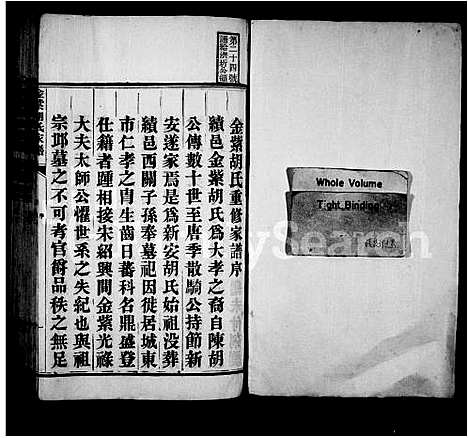 第二十四號
金紫胡氏重修家譜序
績邑金紫胡氏為大孝之裔自陳胡
公傳數十世至唐季散騎公持節新
安遂家焉是為新安胡氏始祖沒葬
績邑西關子孫奉墓祀因徙居城東
市仁孝之自生齒日蕃科名鼎盛登
仕籍者踵相接宋紹興間金紫光祿
大夫太師公懼世系之失紀也與祖
宗邱墓之不可考官爵品秩之無足
Whole Volume
Tight Binding
MySearch